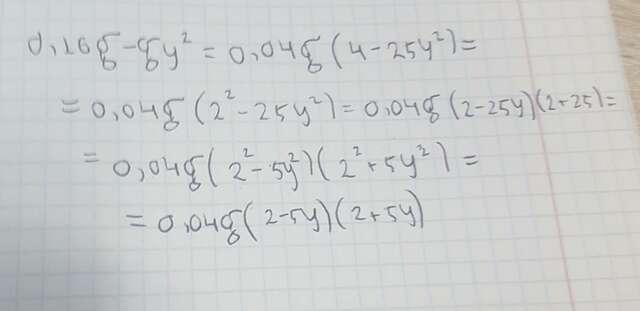 0,16g-gy² = 0,04g(4-25y²)=
= 0,04g(2²-25y²)= 0,04g(2-25y)(2+25)=
= 0,04g(2²-5y²)(2²+5y²)=
= 0,04g(2-5y)(2+5y)